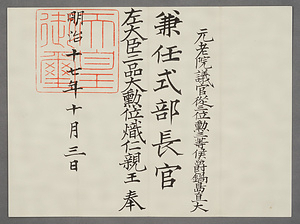 元老院議官従三位勲二等侯爵鍋島直大
兼任式部長官
左大臣二品大勲位熾仁親王奉
明治十七年十月三日
天皇御璽